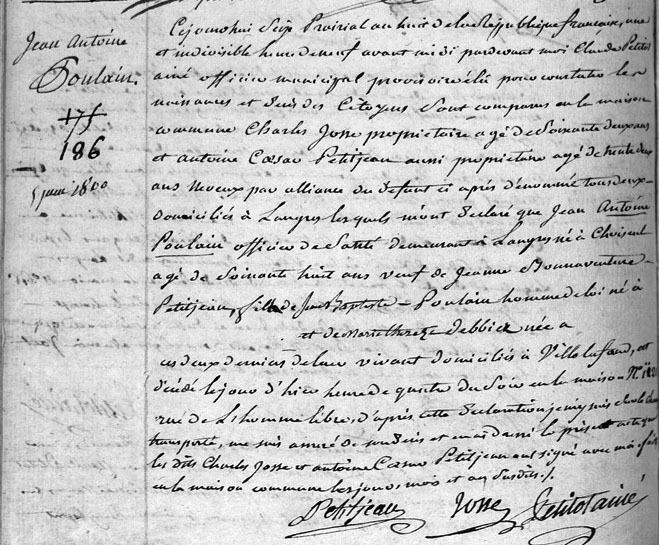 Jean Antoine
Poulain.
175
186
5 juin 1800
Cejourd'hui Seize Prairial an huit de la République française, une
et indivisible heure de neuf avant midi pardevant moi Claude Petitot
ainé officier municipal provisoire élu pour constater les
naissances et décès des Citoyens Sont comparus en la maison
commune Charles Josse propriétaire agé de Soixante deux ans
et antoine Cæsar Petitjean aussi propriétaire agé de trente deux
ans Neveux par alliance du defunt ci après dénommé tous deux
domiciliés à Langres lesquels m'ont déclaré que Jean Antoine
Poulain officier de Santé demeurant à Langres né à Choiseul
agé de Soixante huit ans veuf de Jeanne Bonnaventure
Petitjean, fils de Jean Baptiste Poulain homme de loi né à
et de Marie therese Debbie née a
ces deux derniers de leur vivant domiciliés à Ville la fond, est
décédé le jour d'hier heure de quatre du Soir en la maison N.º
rue de L'homme libre, d'après cette déclaration je m'y suis
transporté, me suis assuré de son décès et en ai dressé le présent acte que
les dits Charles Josse et antoine Cæsar Petitjean ont signé avec moi fait
en la maison commune les jours, mois et an Susdits ./.
Petitjean Josse Petitot ainé